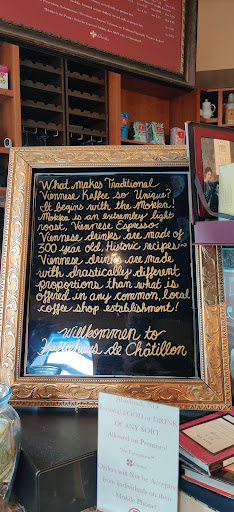 What makes Traditional
Viennese Kaffee so Unique?
It begins with the Mokka!
Mokka is an extremley light
roast, Viennese Espresso.
Viennese drinks are made of
300 year old, Historic recipes~
Viennese drinks are made
with drastically different
proportions than what is
offered in any common, local
coffee shop establishment!
Willkommen to
de Châtillon
Absolutely NO
Personal FOOD or DRINK
Of ANY SORT
Allowed on Premises!
"No Exceptions!"
Orders will Not be Accepted
from Individuals on their
Mobile Phone!